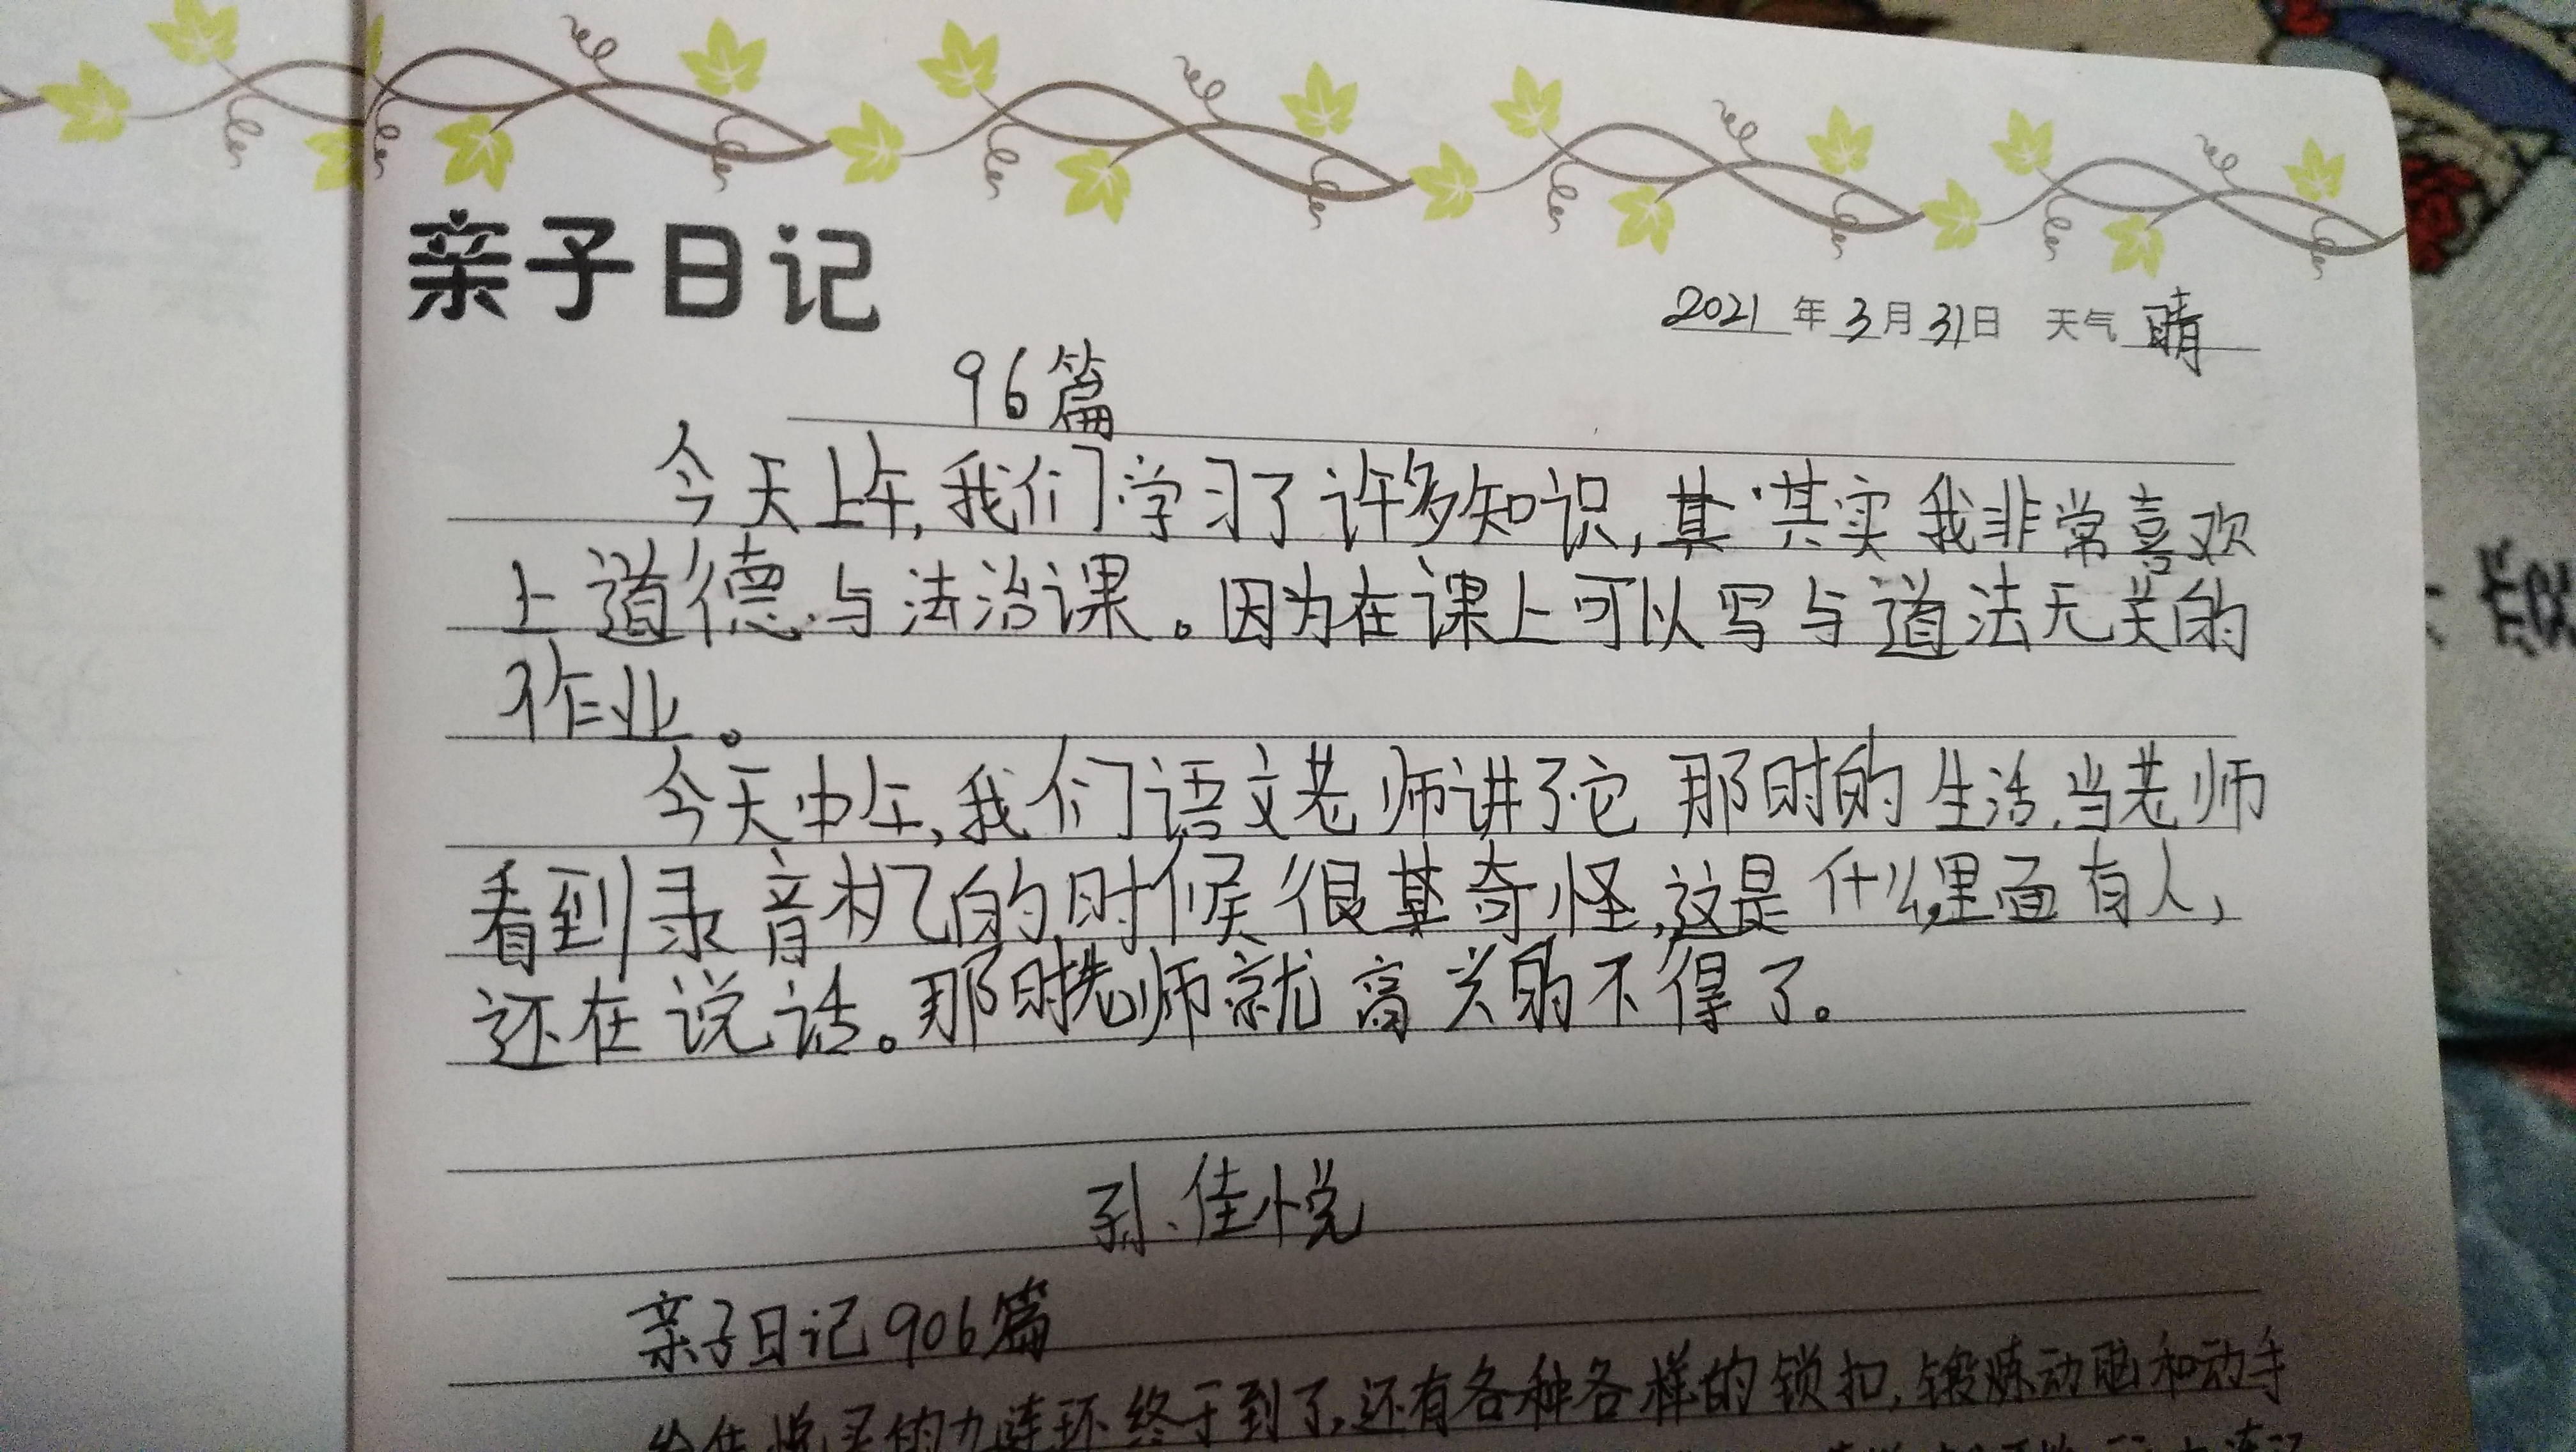 亲子日记
2021年3月31日 天气 晴
96篇
今天上午,我们学习了许多知识,其实我非常喜欢
上道德与法治课。因为在课上可以写与道法无关的
作业。
今天中午,我们语文老师讲了它那时的生活,当老师
看到录音机的时候很奇怪,这是什么,里面有人,
还在说话。那时老师就高兴的不得了。
孙佳悦
亲子日记906篇
给佳悦买的九连环终于到了,还有各种各样的锁扣,锻炼动脑和动手